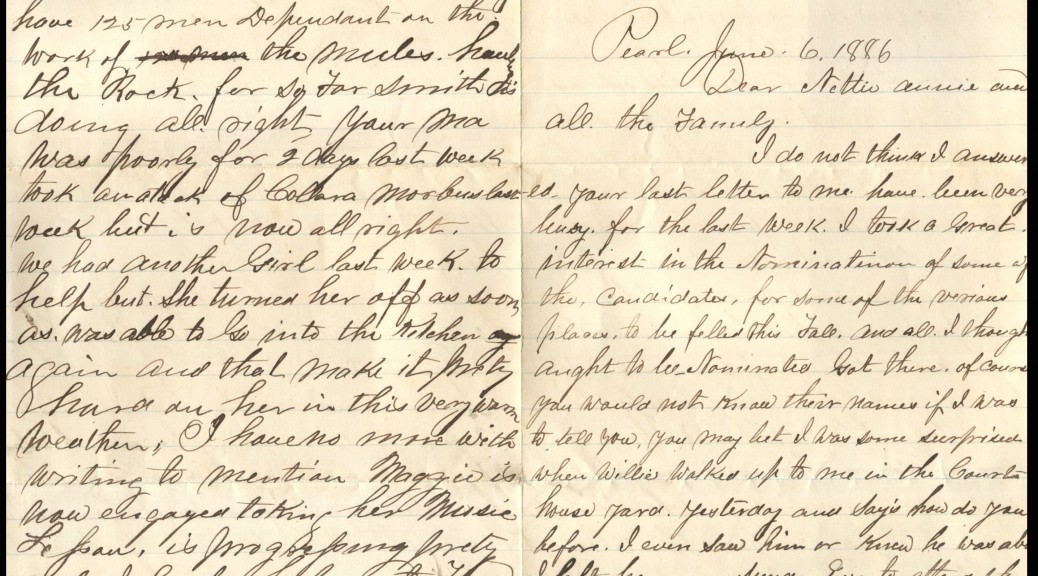 have 125 men Dependant on the
work of the mules. haul
the Rock. for So Far Smith is
doing all right Your Ma
was poorly for 2 days last week
took an attack of Collara Morbus last
week but is now all right.
we had another Girl last week. to
help but. She turned her off as soon
as. was able to Go into the Kitchen
again and that make it prety
hard on her in this very warm
weather, I have no more with
writing to mention Maggie is
now engaged taking her Music
Lesson, is progressing prety
Pearl. June. 6, 1886
Dear Nettie annie and
all. the Family.
I do not think I answer
ed. your last letter to me. have. been very
busy. for the last week. I took a Great.
interest in the Nomination of some of
the, Candidates, for some of the verious
places, to be felled this Fall. and all. I though
aught to be Nominated Got there. of Cours
you would not Know their names if I was
to tell you, you may bet I was some surprised
when Willie walked up to me in the Court
house yard. yesterday and Say's how do you
before. I even saw him or knew he was abo